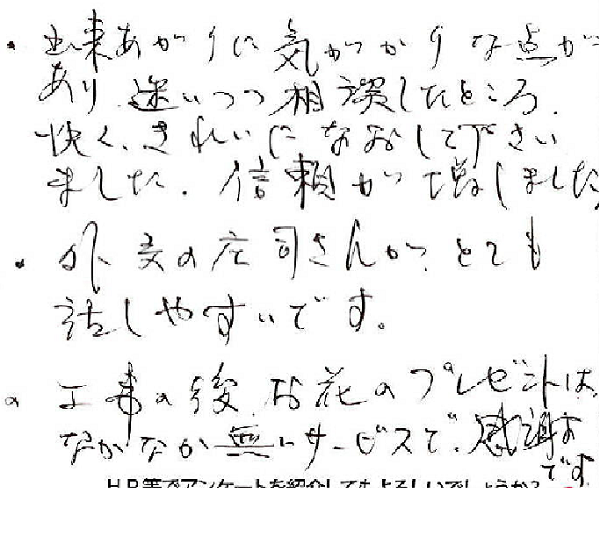 ・出来あがりに気がかりな点が
あり迷いつつ相談したところ、
快く、きれいになおして下さい
ました。信頼が増しました
・外交の庄司さんが、とても
話しやすいです。
・工事の後、お花のプレゼントは、
なかなか無いサービスで、感謝
です
HP等でアンケートを紹介してもよろしいでしょうか？